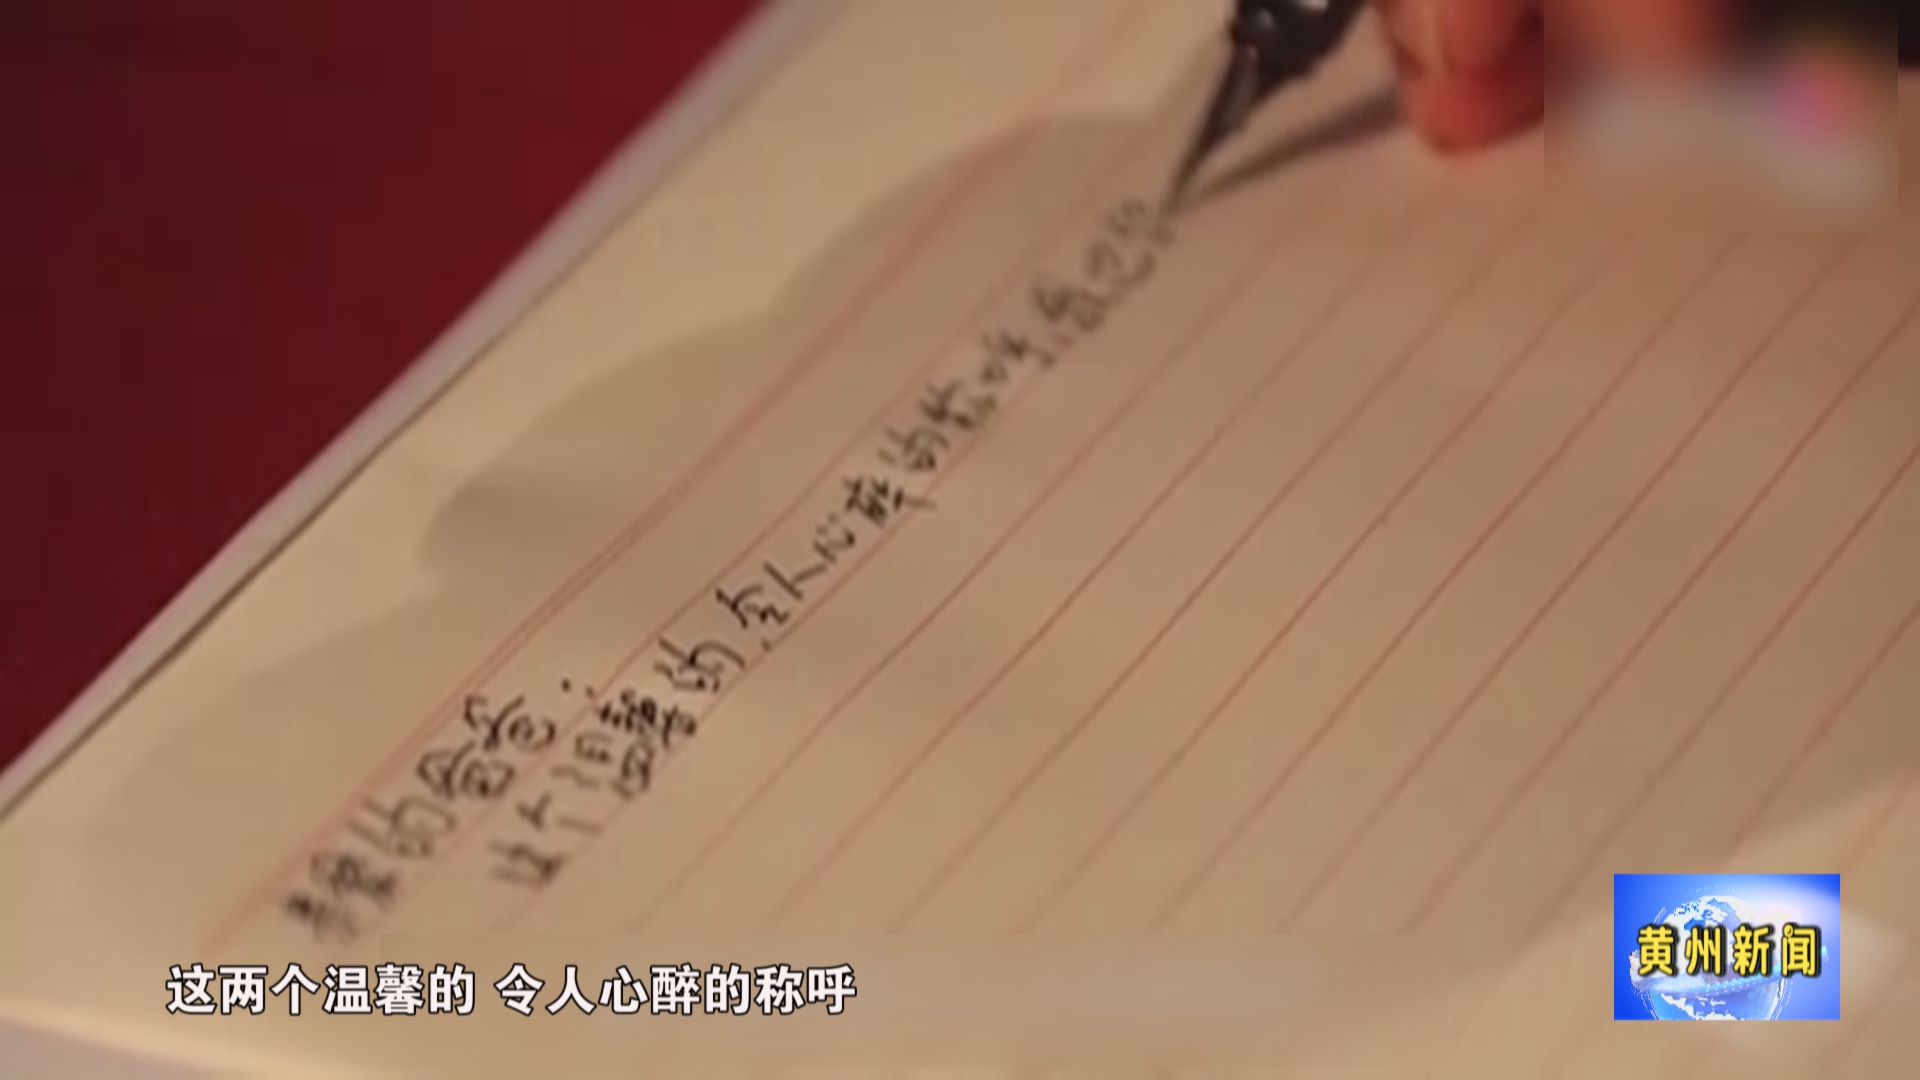 亲爱的爸爸：
这个温馨的，令人心醉的称呼，包含
这两个温馨的 令人心醉的称呼
黄州新闻